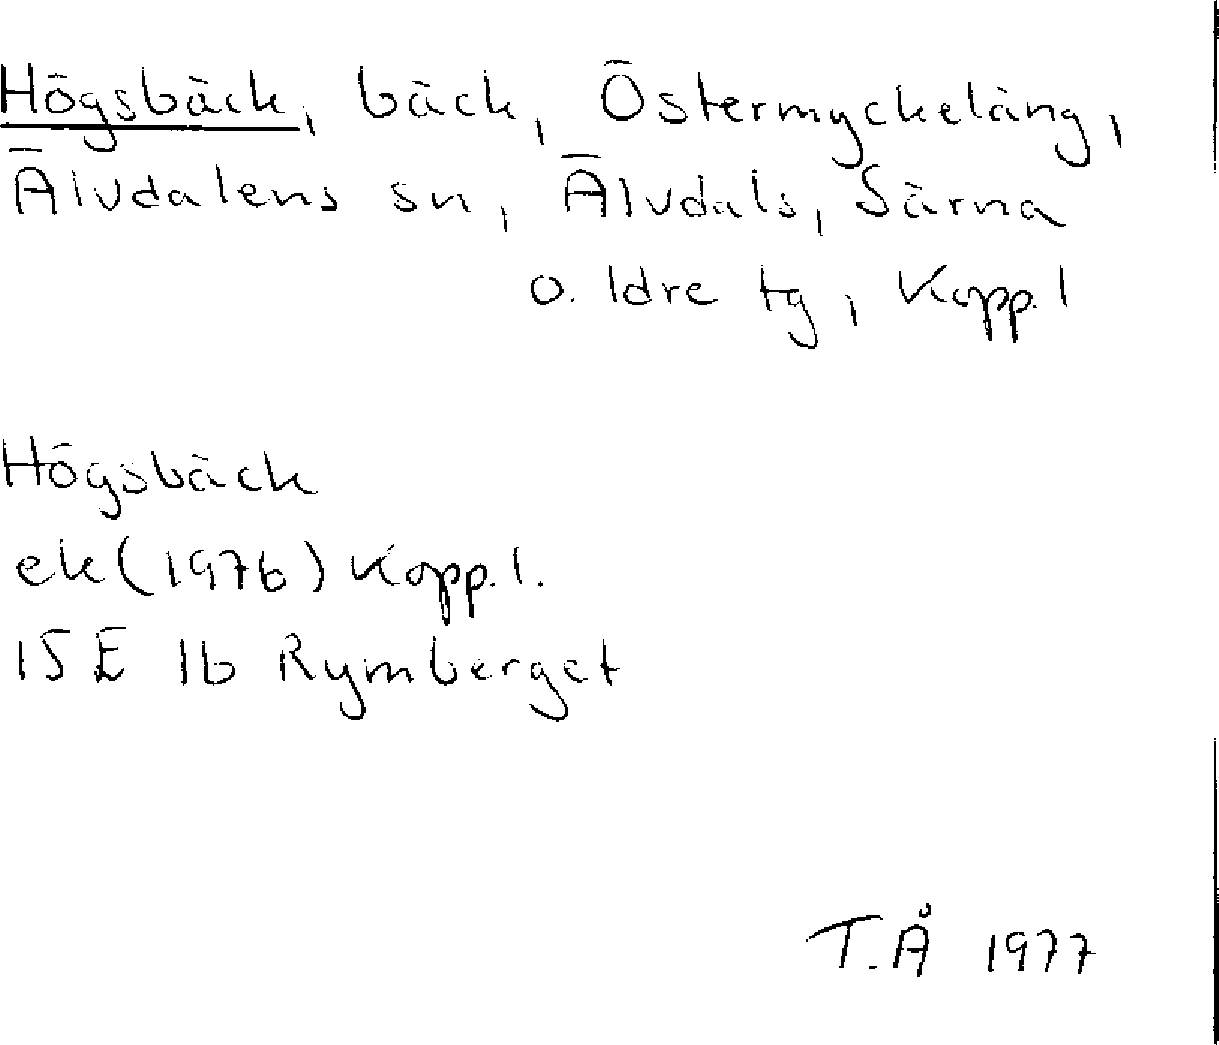 Högsbäck, bäck, Östermyckeläng,
Älvdalens sn, Älvdals, Särna
o. Idre tg, Kopp. l
Högsbäck
ek (1976) Kopp. l.
15 E 1b Rymberget
T.Å 1977